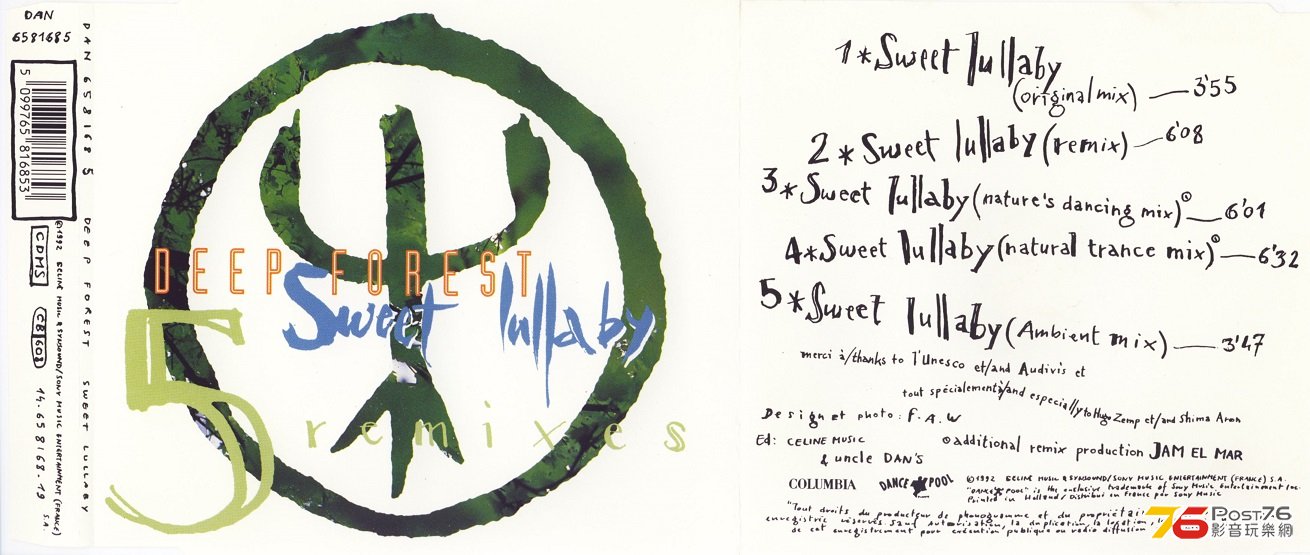 DAN
6581685
5 099765 816853
CDMS
CB 608
DAN 658168 5 DEEP FOREST SWEET LULLABY
℗1992 CELINE MUSIC & SYNSOUND/SONY MUSIC ENTERTAINMENT (FRANCE) S.A.
14.658168.19
DEEP FOREST
Sweet lullaby
5 remixes
1*Sweet lullaby
(original mix) — 3'55
2*Sweet lullaby (remix) — 6'08
3*Sweet lullaby (nature's dancing mix) — 6'01
4*Sweet lullaby (natural trance mix) — 6'32
5*Sweet lullaby (Ambient mix) — 3'47
merci à/thanks to l'Unesco et/and Audivis et
tout spécialement à/and especially to Hugo Zemp et/and Shima Aron
Design et photo: F.A.W
Ed: CELINE MUSIC
& uncle DAN'S
additional remix production JAM EL MAR
COLUMBIA
DANCE POOL
℗1992 CELINE MUSIC & SYNSOUND/SONY MUSIC ENTERTAINMENT (FRANCE) S.A.
"DANCE POOL" is the exclusive trademark of Sony Music Entertainment Inc.
Printed in Holland/Distribué en France par Sony Music
"Tout droits du producteur de phonogramme et du propriétai
enregistrée réservés. Sauf autorisation, la duplication, la location,
de cet enregistrement pour exécution publique ou radio diffusion
76 POST76
影音玩樂網